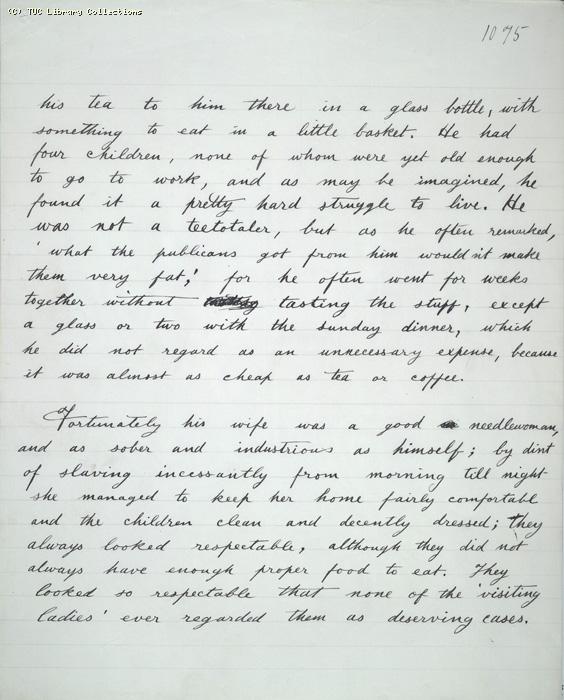 (C) TUC Library Collections
1075
his tea to him there in a glass bottle, with
something to eat in a little basket. He had
four children, none of whom were yet old enough
to go to work, and as may be imagined, he
found it a pretty hard struggle to live. He
was not a teetotaler, but as he often remarked,
'what the publicans got from him wouldn't make
them very fat,' for he often went for weeks
together without tasting the stuff, except
a glass or two with the sunday dinner, which
he did not regard as an unnecessary expense, because
it was almost as cheap as tea or coffee.
Fortunately his wife was a good needlewoman,
and as sober and industrious as himself; by dint
of slaving incessantly from morning till night
she managed to keep her home fairly comfortable
and the children clean and decently dressed; they
always looked respectable, although they did not
always have enough proper food to eat. They
looked so respectable that none of the 'visiting
ladies' ever regarded them as deserving cases.